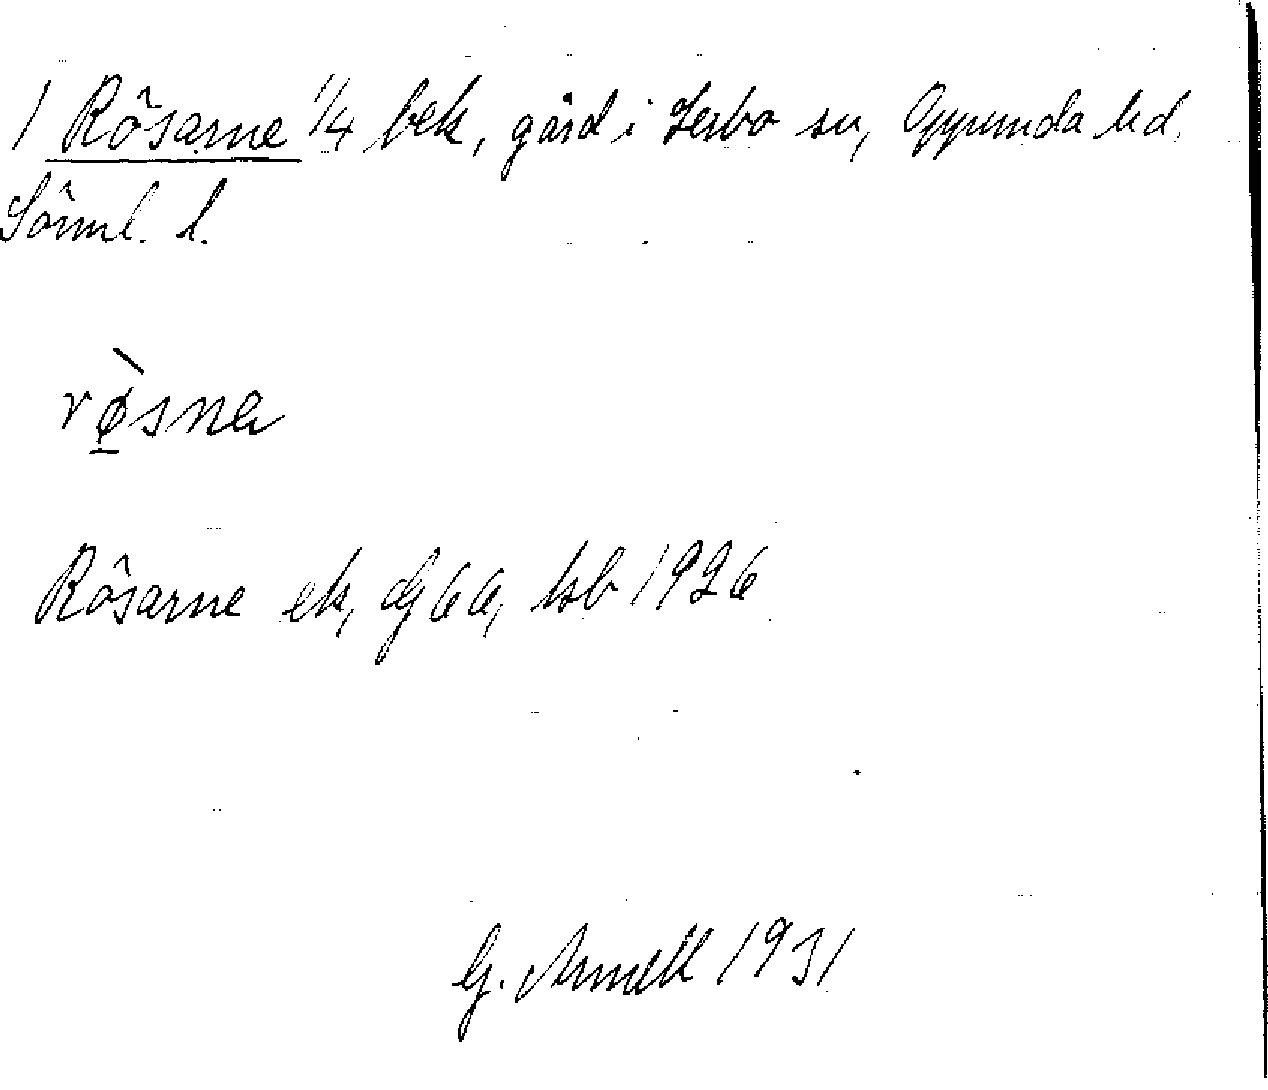 1 Rôsarne 1/4 bek, gård i Lerbo sn, Oppunda hd.
Sôrml. l.
rø̀sna
Rôsarne ek, Gj 66, hsb 1926
G. Arnell 1931